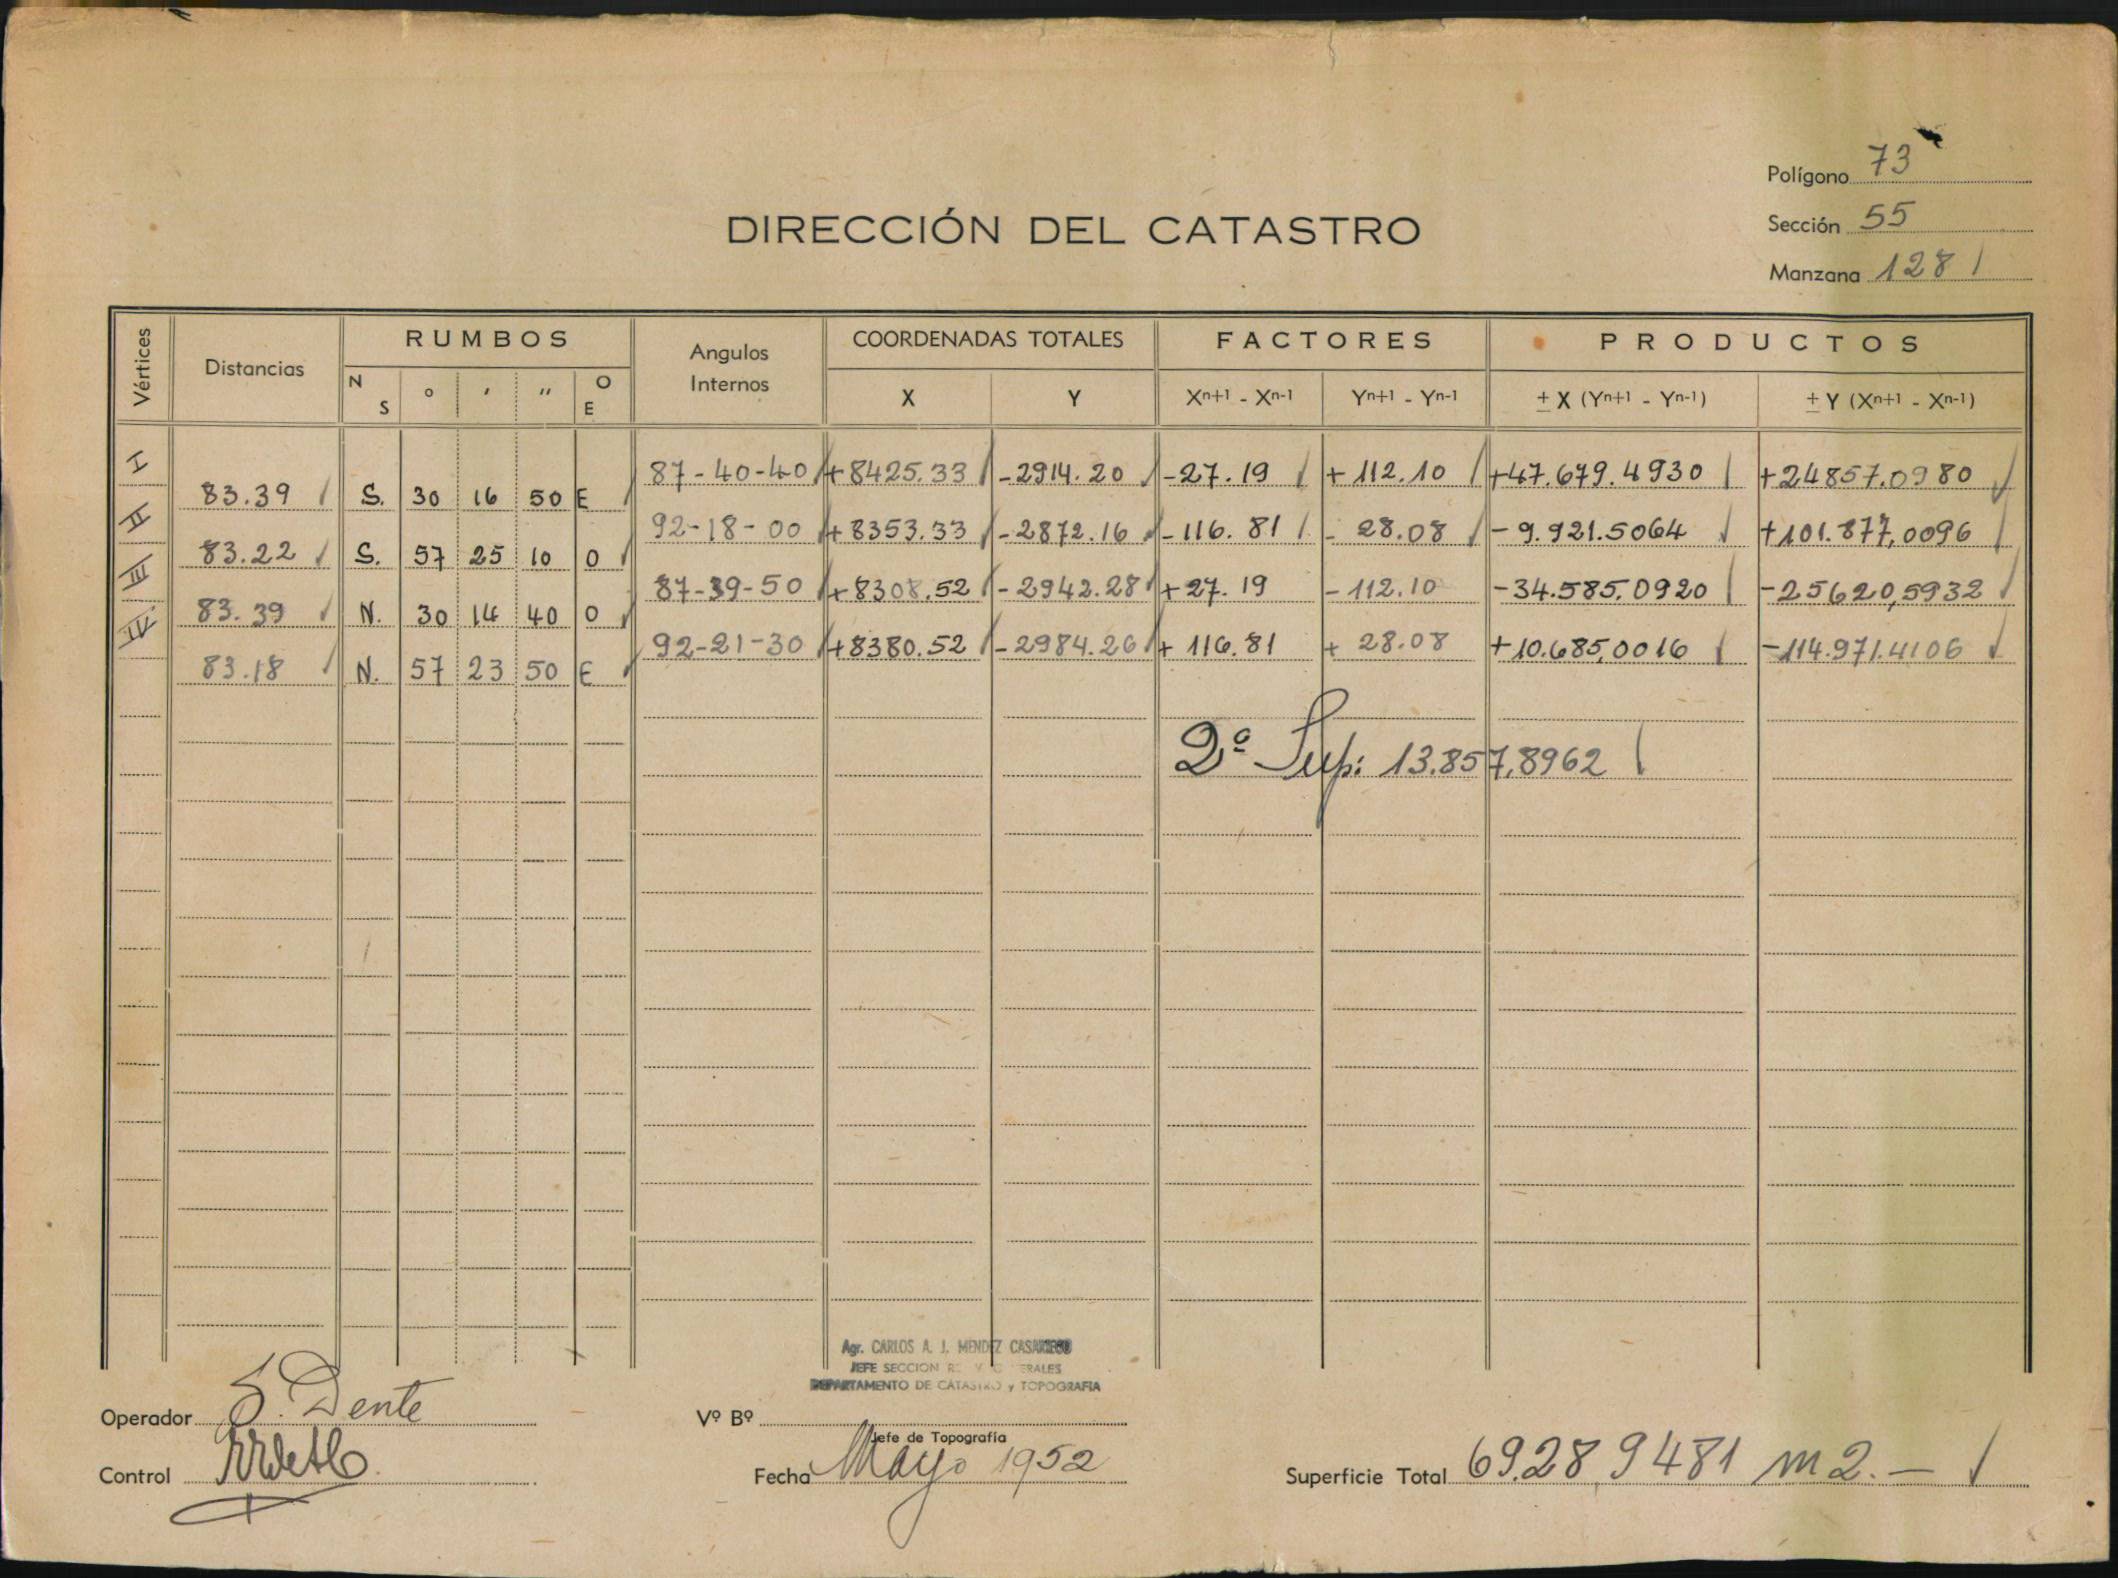 Polígono 73
DIRECCIÓN DEL CATASTRO
Sección 55
Manzana 128
Vértices Distancias RUMBOS Angulos Internos COORDENADAS TOTALES FACTORES PRODUCTOS
N S ° ' " O E X Y Xn+1 - Xn-1 Yn+1 - Yn-1 ± X (Yn+1 - Yn-1) ± Y (Xn+1 - Xn-1)
I 87-40-40 +8425.33 -2914.20 -27.19 +112.10 +47.679.4930 +24857.0980
83.39 S. 30 16 50 E
II 92-18-00 +8353.33 -2872.16 -116.81 - 28.08 -9.921.5064 +101.877,0096
83.22 S. 57 25 10 O
III 87-39-50 +8308.52 -2942.28 +27.19 -112.10 -34.585.0920 -25620,5932
83.39 N. 30 14 40 O
IV 92-21-30 +8380.52 -2984.26 + 116.81 + 28.08 +10.685,0016 -114.971.4106
83.18 N. 57 23 50 E
2ª Sup: 13.857,8962
Agr. CARLOS A. J. MENDEZ
JEFE SECCION
DEPARTAMENTO DE CATASTRO y TOPOGRAFIA
Operador S. Dente
Vº Bº
Jefe de Topografía
Control
Fecha Mayo 1952
Superficie Total 69.28,9481 m2.-